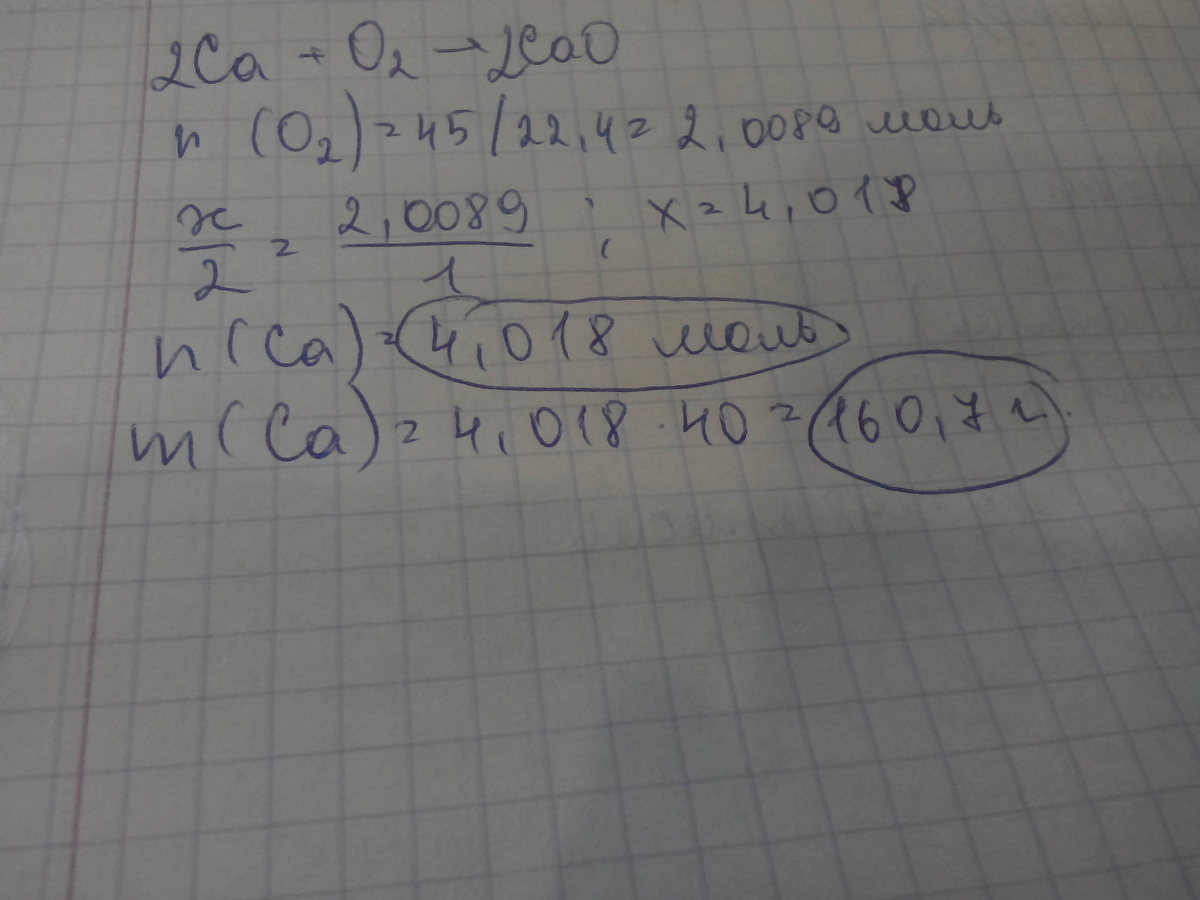 2Ca + O₂ → 2CaO
n (O₂) = 45 / 22,4 = 2,0089 моль
x/2 = 2,0089/1 ; x = 4,018
n (Ca) = 4,018 моль
m (Ca) = 4,018 · 40 = 160,7 г.